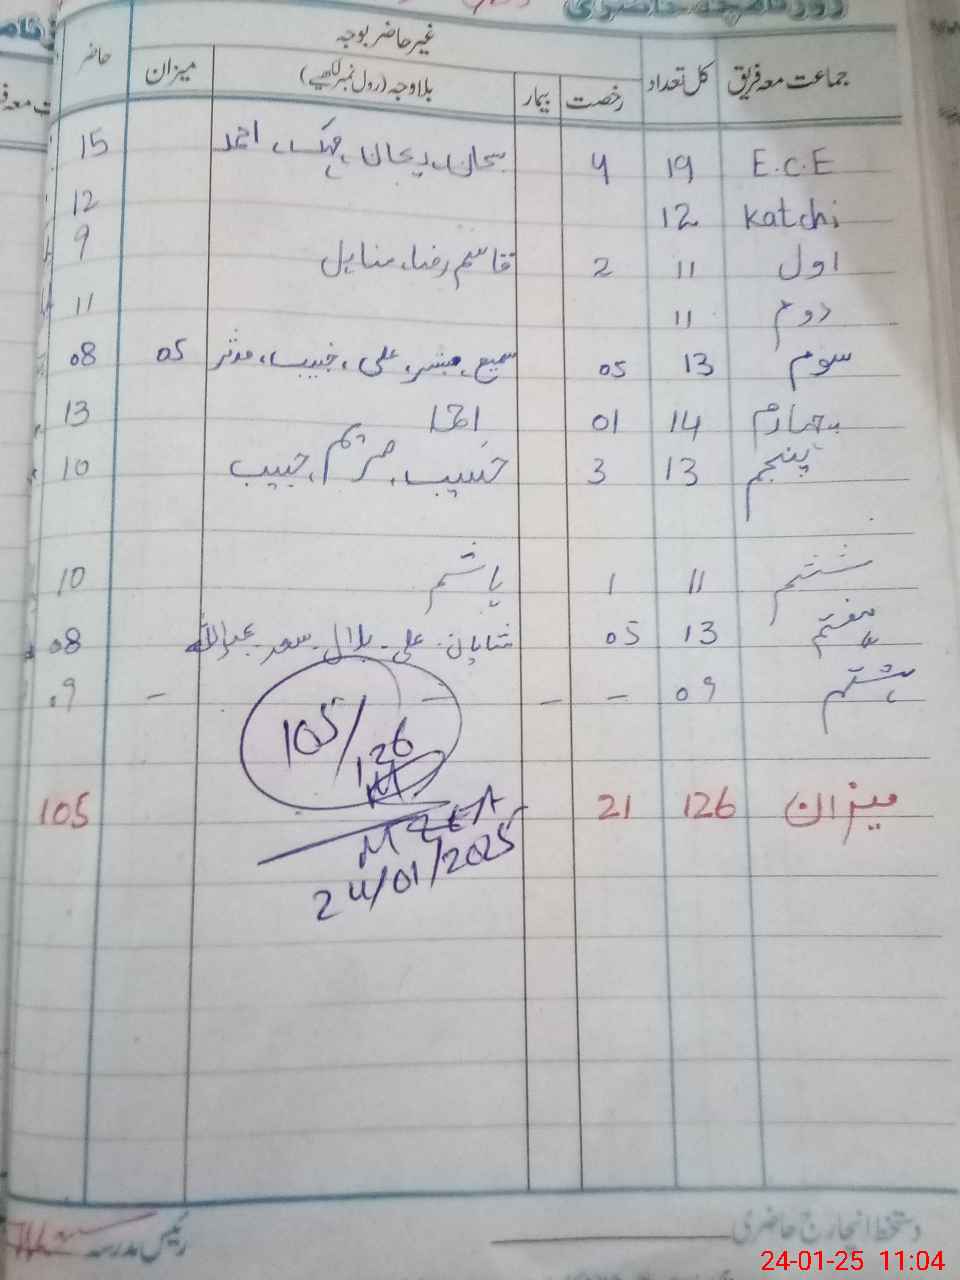 روزنامچہ حاضری
جماعت معہ فریق کل تعداد غیر حاضر بوجہ حاضر
رخصت بیمار بلاوجہ (رول نمبر لکھیے) میزان
E.C.E 19 4 سبحان، ریحان، مہک، احمد 15
Katchi 12 12
اول 11 2 قاسم رضا، مناہل 9
دوم 11 11
سوم 13 05 سمیع، مبشر، علی، خبیب، مدثر 05 08
چہارم 14 01 13
پنجم 13 3 حسیب، مریم، حبیب 10
ششم 11 1 ہاشم 10
ہفتم 13 05 شایان۔ علی۔ بلال۔ سعد۔ عبداللہ 08
ہشتم 09 – – – – 09
105/126
میزان 126 21 105
24/01/2025
دستخط انچارج حاضری
رئیس مدرسہ
24-01-25 11:04